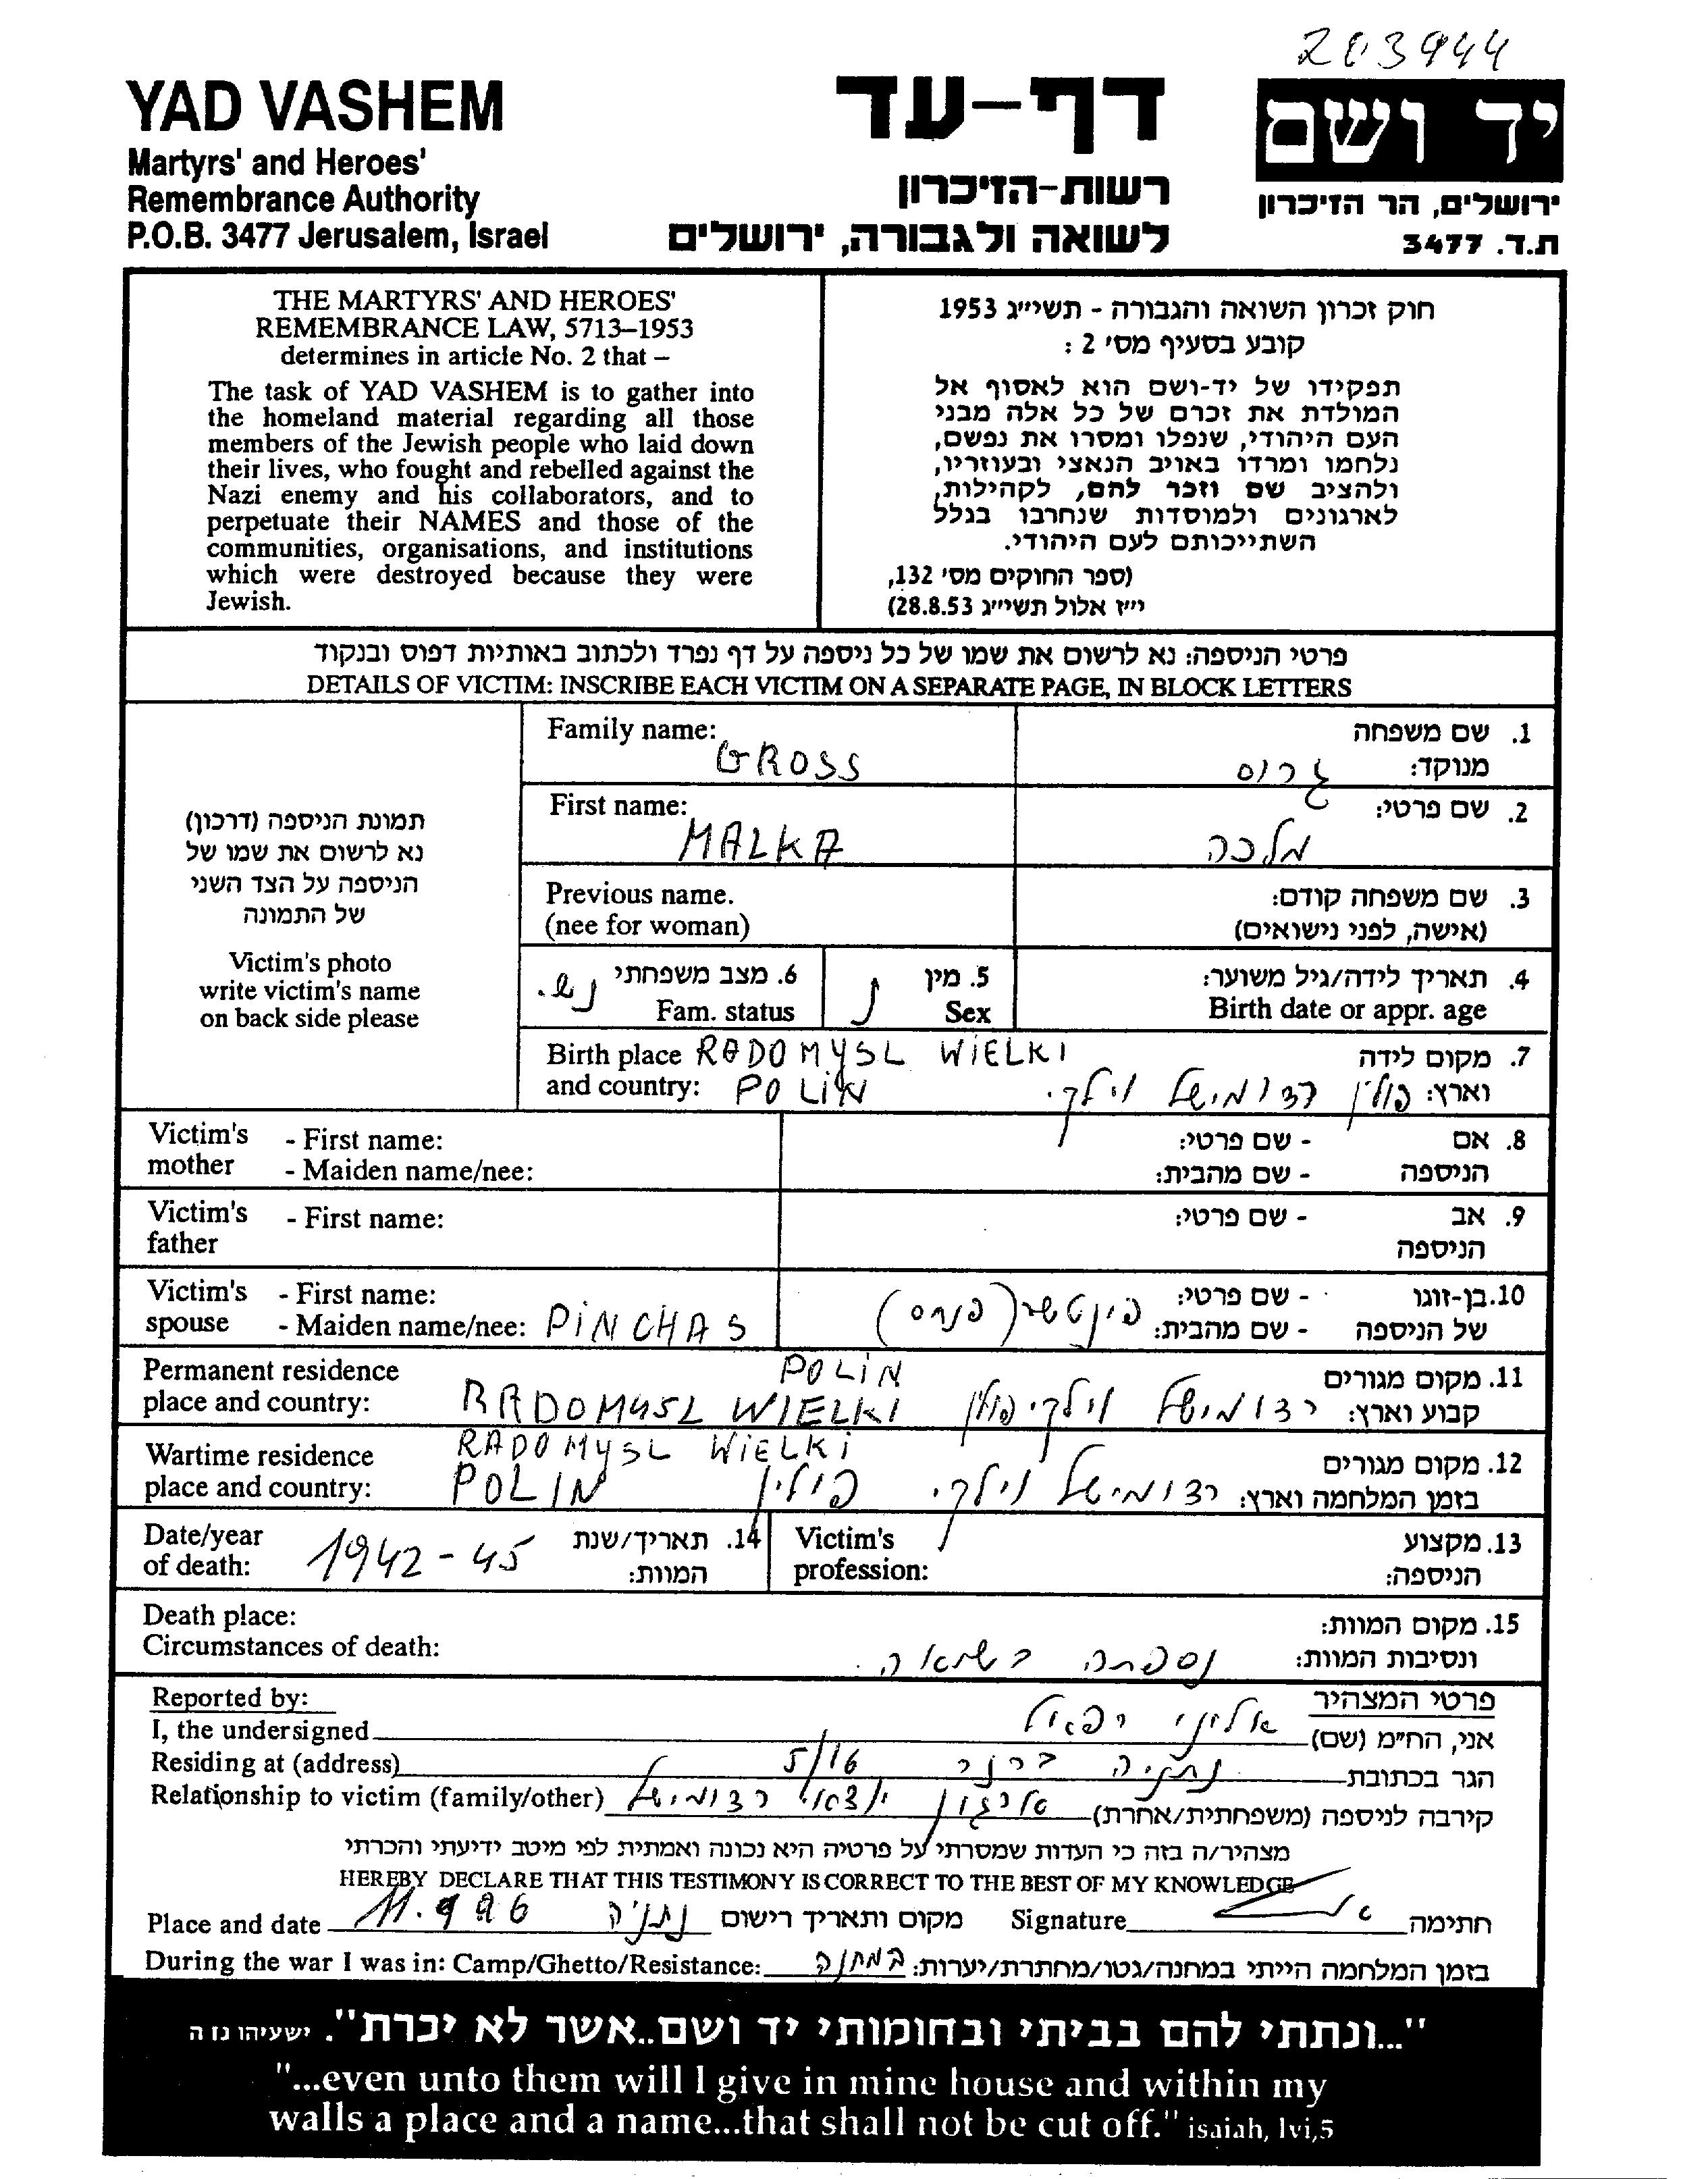 203944
YAD VASHEM
Martyrs' and Heroes'
Remembrance Authority
P.O.B. 3477 Jerusalem, Israel
דף-עד
רשות-הזיכרון
לשואה ולגבורה, ירושלים
יד ושם
ירושלים, הר הזיכרון
ת.ד. 3477
THE MARTYRS' AND HEROES'
REMEMBRANCE LAW, 5713–1953
determines in article No. 2 that –
The task of YAD VASHEM is to gather into
the homeland material regarding all those
members of the Jewish people who laid down
their lives, who fought and rebelled against the
Nazi enemy and his collaborators, and to
perpetuate their NAMES and those of the
communities, organisations, and institutions
which were destroyed because they were
Jewish.
חוק זכרון השואה והגבורה - תשי״ג 1953
קובע בסעיף מס' 2 :
תפקידו של יד-ושם הוא לאסוף אל
המולדת את זכרם של כל אלה מבני
העם היהודי, שנפלו ומסרו את נפשם,
נלחמו ומרדו באויב הנאצי ובעוזריו,
ולהציב שם וזכר להם, לקהילות,
לארגונים ולמוסדות שנחרבו בגלל
השתייכותם לעם היהודי.
(ספר החוקים מס' 132,
י״ז אלול תשי״ג 28.8.53)
פרטי הניספה: נא לרשום את שמו של כל ניספה על דף נפרד ולכתוב באותיות דפוס ובנקוד
DETAILS OF VICTIM: INSCRIBE EACH VICTIM ON A SEPARATE PAGE, IN BLOCK LETTERS
תמונת הניספה (דרכון)
נא לרשום את שמו של
הניספה על הצד השני
של התמונה
Victim's photo
write victim's name
on back side please
Family name: 1. שם משפחה
GROSS גרוס מנוקד:
First name: 2. שם פרטי:
MALKA מלכה
Previous name. 3. שם משפחה קודם:
(nee for woman) (אישה, לפני נישואים)
נש. 6. מצב משפחתי נ 5. מין 4. תאריך לידה/גיל משוער:
Fam. status Sex Birth date or appr. age
Birth place RADOMYSL WIELKI 7. מקום לידה
and country: POLIN וארץ: פולין רדומישל וילקי.
Victim's - First name: - שם פרטי: 8. אם
mother - Maiden name/nee: - שם מהבית: הניספה
Victim's - First name: - שם פרטי: 9. אב
father הניספה
Victim's - First name: - שם פרטי: 10. בן-זוגו
spouse - Maiden name/nee: PINCHAS פינטשר (פנחס) - שם מהבית: של הניספה
Permanent residence POLIN 11. מקום מגורים
place and country: RADOMYSL WIELKI קבוע וארץ: רדומישל וילקי פולין
Wartime residence RADOMYSL WIELKI 12. מקום מגורים
place and country: POLIN בזמן המלחמה וארץ: רדומישל וילקי. פולין
Date/year 14. תאריך/שנת Victim's 13. מקצוע
of death: 1942-45 המוות: profession: הניספה:
Death place: 15. מקום המוות:
Circumstances of death: ונסיבות המוות: נספתה בשואה.
Reported by: פרטי המצהיר
I, the undersigned אני, הח״מ (שם) אלוני רפאל
Residing at (address) הגר בכתובת נתניה ברנר 5/16
Relationship to victim (family/other) קירבה לניספה (משפחתית/אחרת) ארגון יוצאי רדומישל
מצהיר/ה בזה כי העדות שמסרתי על פרטיה היא נכונה ואמתית לפי מיטב ידיעתי והכרתי
HEREBY DECLARE THAT THIS TESTIMONY IS CORRECT TO THE BEST OF MY KNOWLEDGE
Place and date 11.9 96 נתניה מקום ותאריך רישום Signature חתימה
During the war I was in: Camp/Ghetto/Resistance: בזמן המלחמה הייתי במחנה/גטו/מחתרת/יערות: במחנה
"...ונתתי להם בביתי ובחומותי יד ושם..אשר לא יכרת". ישעיהו נז ה
"...even unto them will I give in mine house and within my
walls a place and a name...that shall not be cut off." isaiah, lvi,5